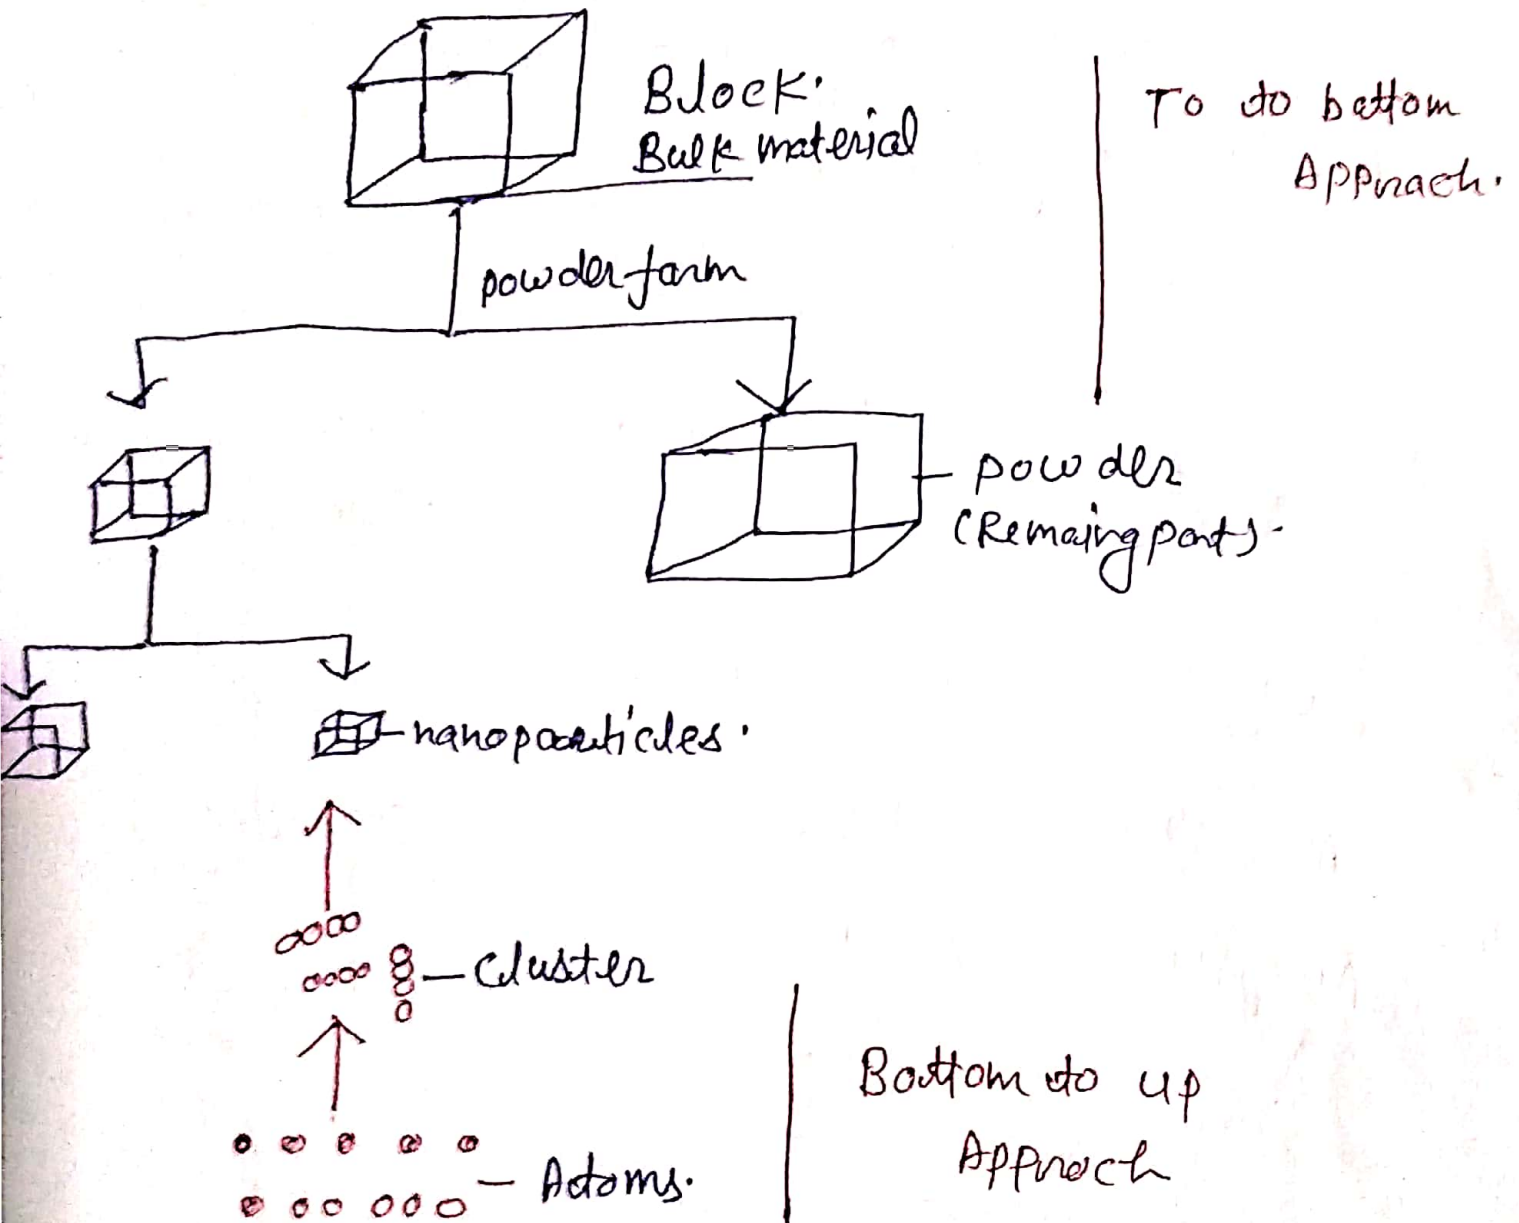 Block.
Bulk material
To do bottom
Approach.
powder form
powder
(Remaing part).
nanoparticles.
Cluster
Bottom to up
Approach
Atoms.